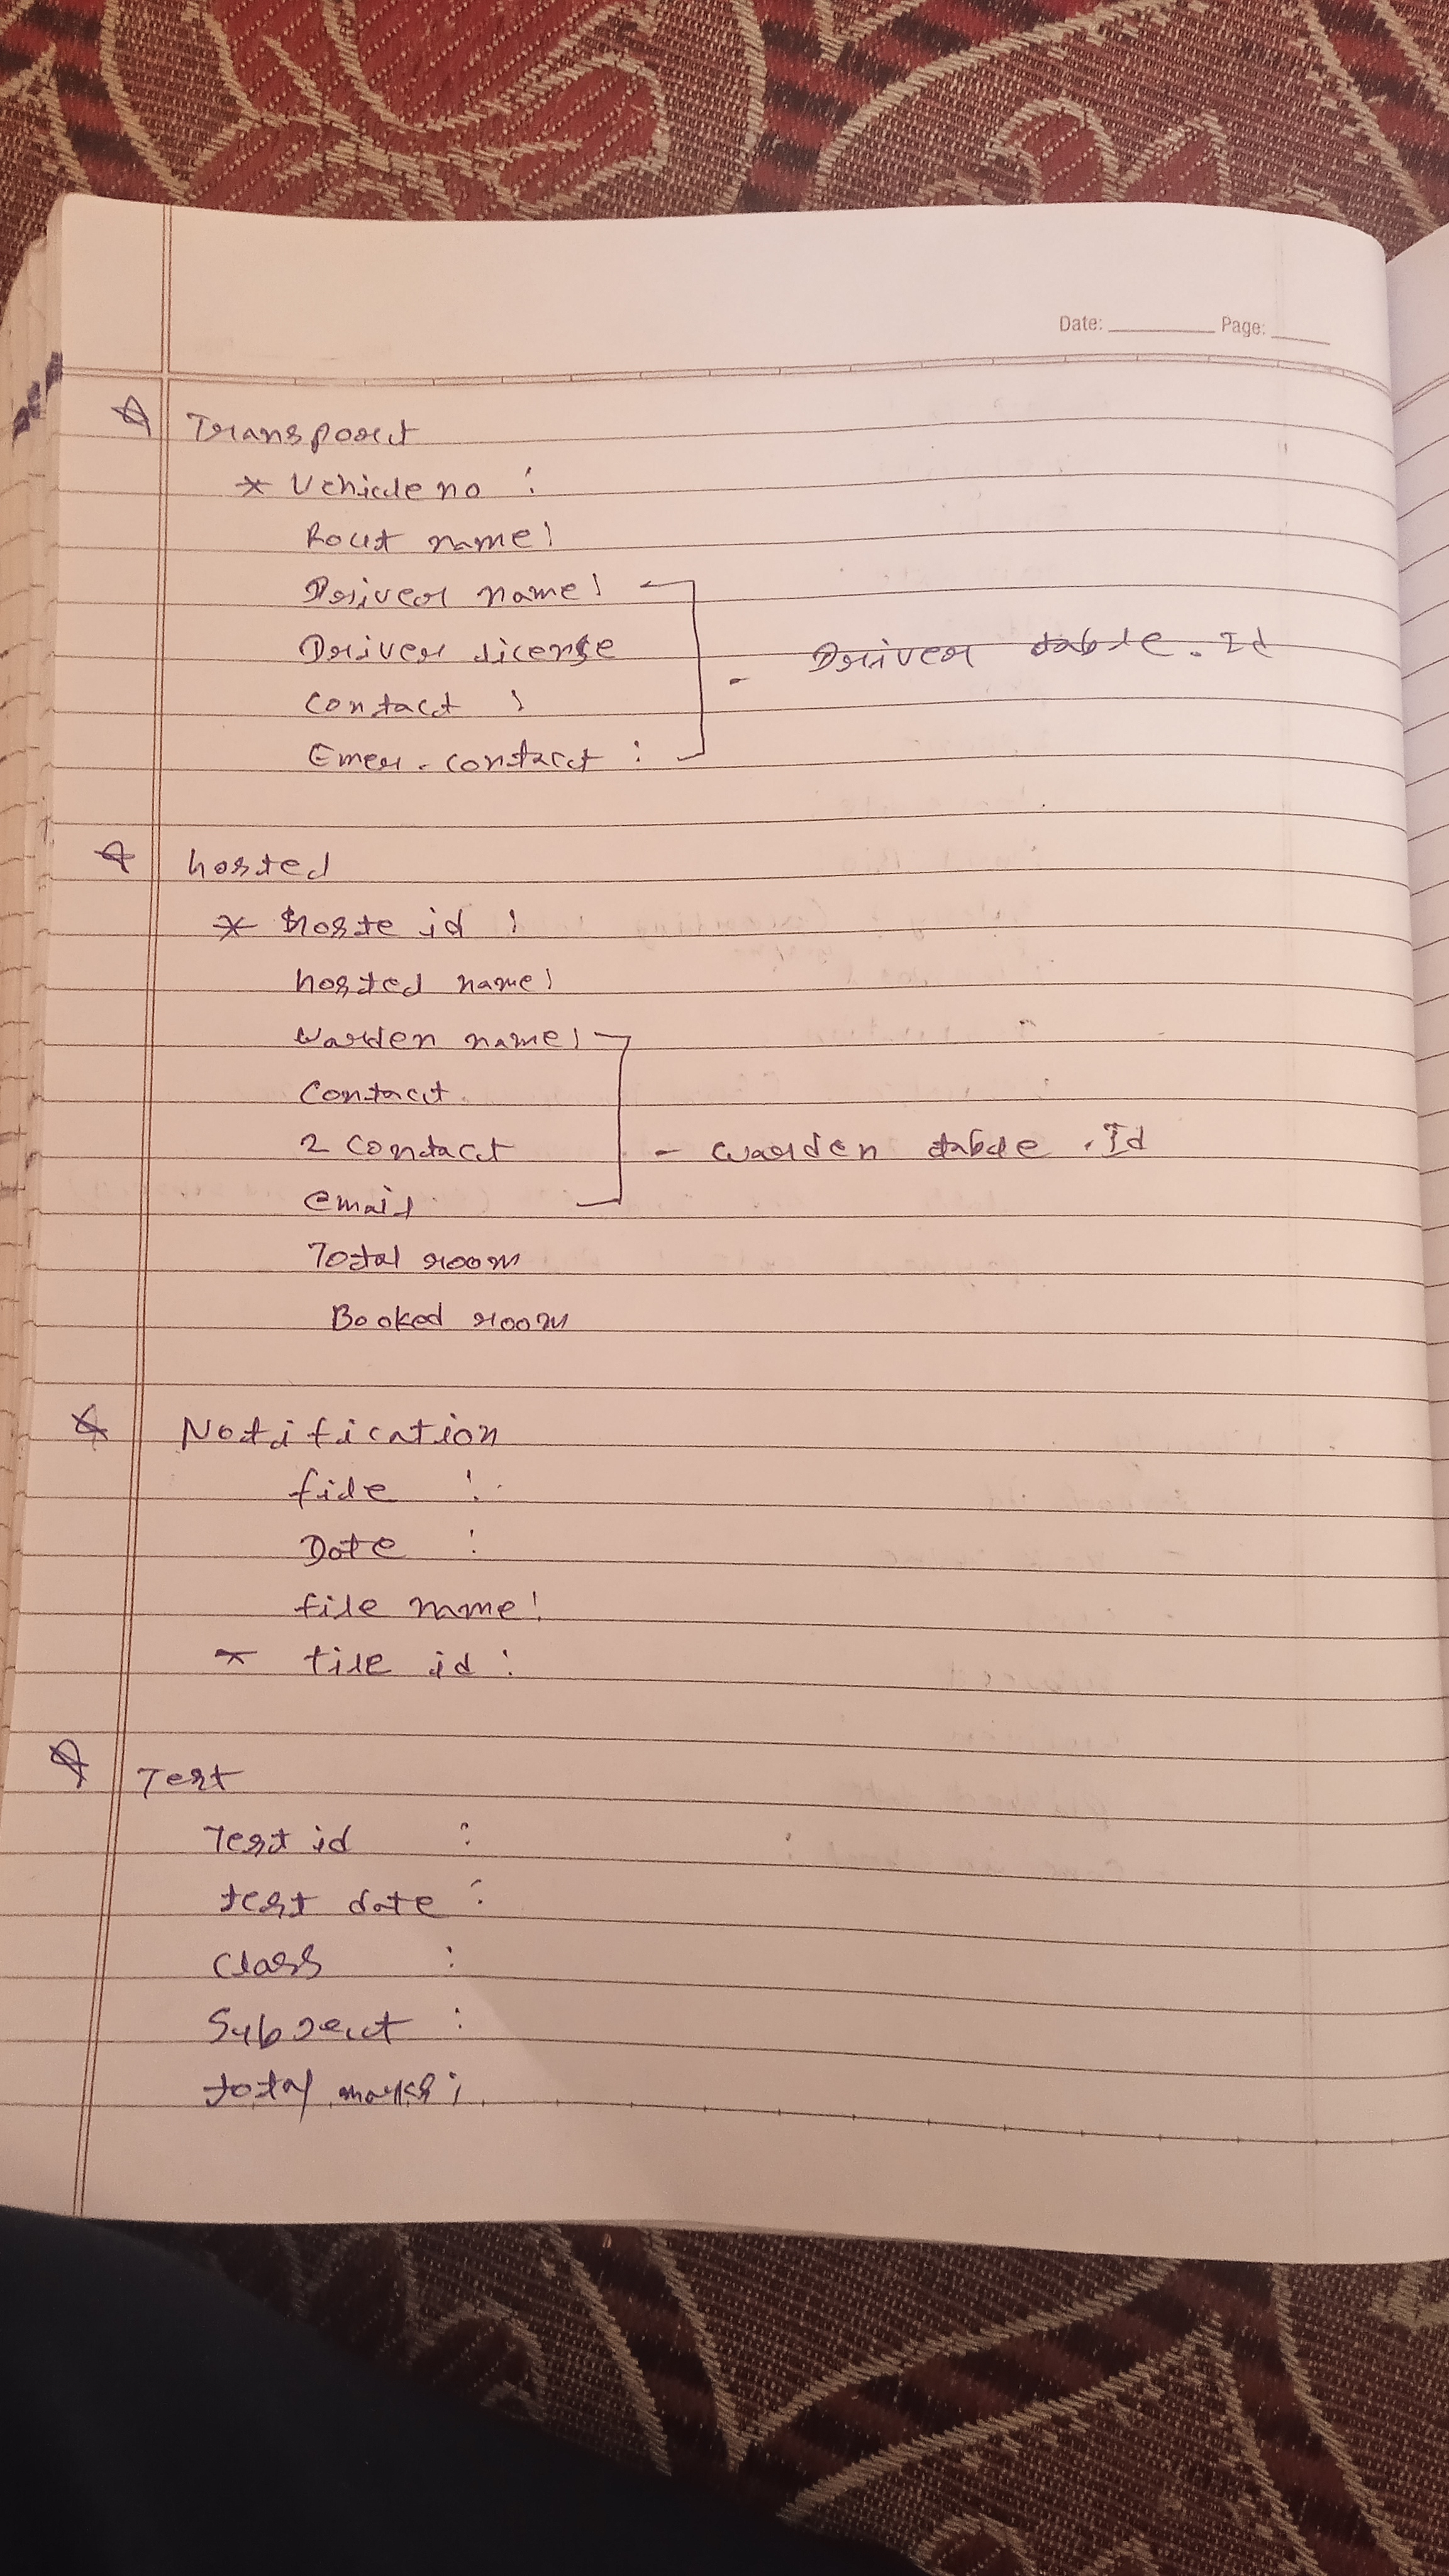 Date: Page:
☆ Transport
* Vehicle no :
Rout name :
Driver name :
Driver license - Driver table . Id
Contact :
Emer . contact :
☆ hostel
* hoste id :
hostel name :
warden name :
Contact
2 Contact - warden table . Id
email
Total room
Booked room
☆ Notification
file :
Date :
file name :
* file id :
☆ Test
Test id :
test date :
Class :
Subject :
total marks :